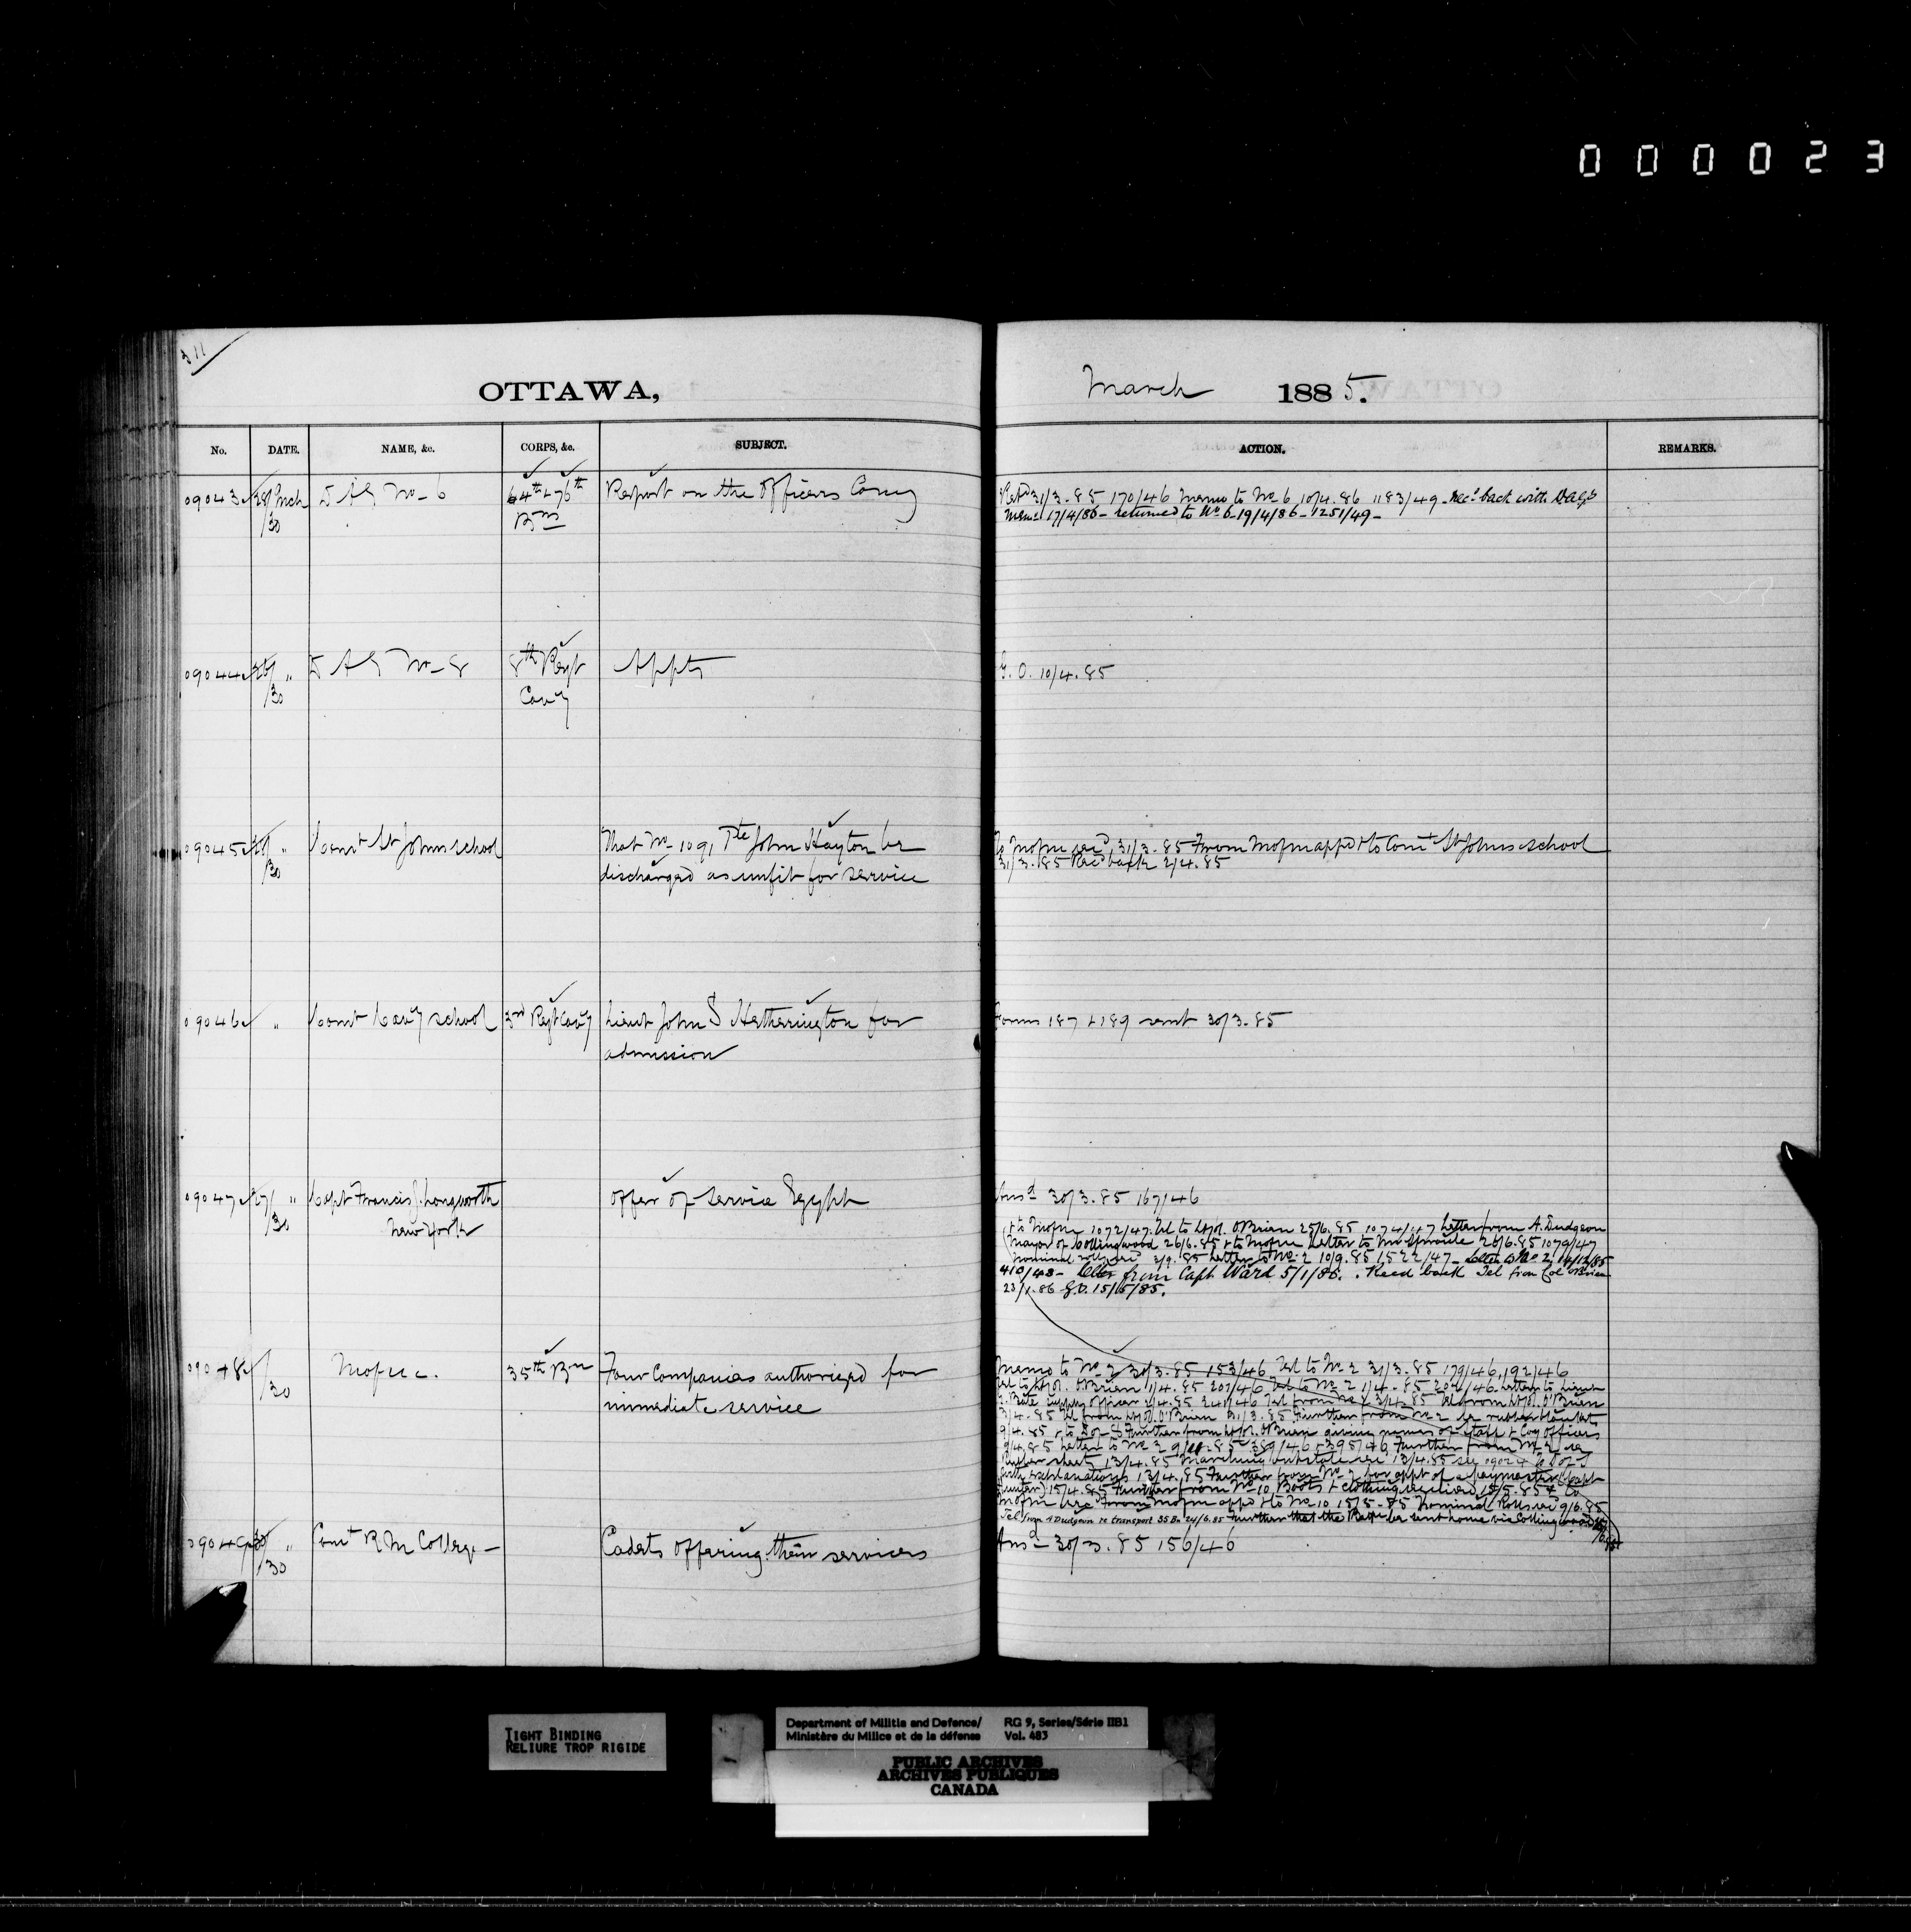 000023
311
OTTAWA,
March 1885.
No. DATE. NAME, &c. CORPS, &c. SUBJECT. ACTION. REMARKS.
09043 28/Mch /30 D A G No 6 64th + 76th Bns Report on the Officers Comg
Retd 31/3.85 170/46 Memo to No 6 10/4.86 1183/49 - Recd back with DAG's
Memo 17/4/86 - returned to No 6 - 19/4/86 - 1251/49 -
09044 " /30 D A G No 8 8th Regt Cavy Appts
G.O. 10/4.85
09045 " /30 Comt St Johns school That No 1091 Pte John Hayton be
discharged as unfit for service
To Mofm recd 31/3.85 From Mofm appd + to Comt St Johns school
31/3.85 Recd back 2/4.85
09046 " Comt Cavy school 3rd Regt Cavy Lieut John S Hetherington for
admission
Forms 187 + 189 sent 30/3.85
09047 27/ " /30 Capt Francis J. Longworth
New York
offer of service Egypt
Ansd 30/3.85 167/46
+ to Mofm 1072/47. Tel to Lt Col. O'Brien 25/6.85 1074/47 Letter from A. Dudgeon
Mayor of Collingwood 26/6.85 + to Mofm Letter to Mr Sproule 26/6.85 1079/47
nominal roll recd 2/9.85 Letter to No 2 10/9.85 1522/47 - Letter to No 2, 14/12/85
410/48 - Letter from Capt Ward 5/1/86. Recd back Tel from Col O'Brien
23/1.86 G.O. 15/5/85.
09048 /30 Mofm c. 35th Bn Four Companies authorized for
immediate service
Memo to No 2 30/3.85 153/46 Tel to No 2 31/3.85 179/46, 192/46
Tel to Lt Col. O'Brien 1/4.85 201/46 Tel to No 2 1/4.85 204/46 Letter to Lieut
Bate Supply Officer 2/4.85 240/46 Tel from No 2 3/4.85 Tel from Lt Col. O'Brien
3/4.85 Tel from Lt Col. O'Brien 31/3.85 Further from No 2 re rubber blankets
9/4.85 + to Further from Lt Col. O'Brien giving names of staff + Coy Officers
9/4.85 Letter to No 2 9/4.85 389/46 + 395/46 Further from No 2 re
rubber sheets 13/4.85 Marching out state recd 13/4.85 see 09024
with explanations 13/4.85 Further from No 2 for appt of a paymaster (Capt
Hunter) 15/4.85 Further from No 10 Boots + clothing received 15/5.85 + to
Mofm recd From Mofm appd + to No 10 15/5.85 Nominal Rolls recd 9/6.85
Tel from A Dudgeon re transport 35 Bn 24/6.85 Further that the Battn be sent home via Collingwood
09049 " /30 Comt R M College - Cadets offering their services
Ansd 30/3.85 156/46
TIGHT BINDING
RELIURE TROP RIGIDE
Department of Militia and Defence/
Ministère du Milice et de la défense
RG 9, Series/Série IIB1
Vol. 483
PUBLIC ARCHIVES
ARCHIVES PUBLIQUES
CANADA